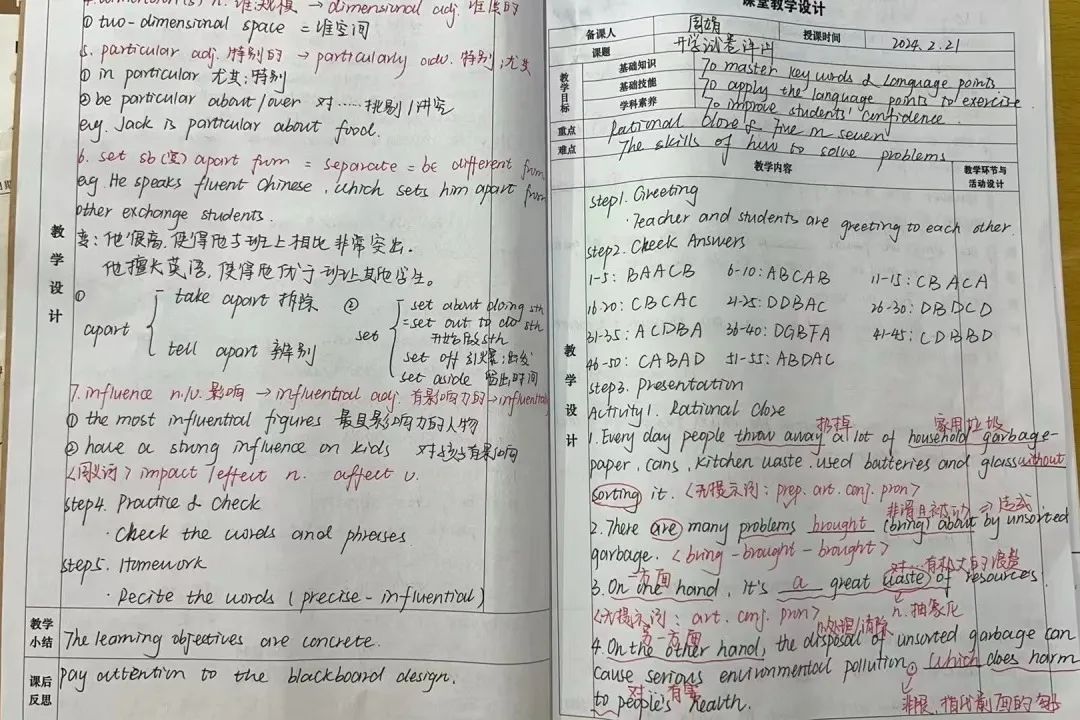 4. dimension(s) n. 维;规模 → dimensional adj. 维度的
① two-dimensional space = 二维空间
5. particular adj. 特别的 → particularly adv. 特别;尤其
① in particular 尤其;特别
② be particular about/over 对……挑剔/讲究
eg. Jack is particular about food.
6. set sb(宾) apart from = separate = be different from
eg. He speaks fluent Chinese, which sets him apart from
other exchange students.
他很高,使得他与班上相比非常突出。
他擅长英语,使得他优于班上其他学生。
① apart
take apart 拆除
tell apart 辨别
② set
set about doing sth
= set out to do sth
开始做sth
set off 引爆;出发
set aside 留出时间
7. influence n./v. 影响 → influential adj. 有影响力的 → influentially
① the most influential figures 最具影响力的人物
② have a strong influence on kids 对孩子有影响
<同义词> impact / effect n. affect v.
step4. Practice & Check
· Check the words and phrases
step5. Homework
· Recite the words (precise - influential)
教学设计
教学小结
The learning objectives are concrete.
课后反思
Pay attention to the blackboard design.
课堂教学设计
备课人 周娟 授课时间 2024.2.21
课题 开学试卷评讲
教学目标
基础知识 To master key words & language points
基础技能 To apply the language points to exercise
学科素养 To improve students' confidence.
重点 Rational Clore & Five in seven
难点 The skills of how to solve problems
教学内容 教学环节与活动设计
教学设计
step1. Greeting
· Teacher and students are greeting to each other.
step2. Check Answers
1-5: BAACB 6-10: ABCAB 11-15: CBACA
16-20: CBCAC 21-25: DDBAC 26-30: DBDCD
31-35: ACDBA 36-40: DGBFA 41-45: CDBBD
46-50: CABAD 51-55: ABDAC
step3. Presentation
Activity1. Rational Clore
扔掉 家用垃圾
1. Every day people throw away a lot of household garbage-
paper, cans, kitchen waste, used batteries and glass without
sorting it. <无提示词: prep. art. conj. pron>
非谓且被动 → 过去式
2. There are many problems brought (bring) about by unsorted
garbage. <bring - brought - brought>
一方面 对…有极大的浪费
3. On one hand, it's a great waste of resources.
<无提示词: art. conj. pron> n. 抽象化
另一方面 处理/消除
4. On the other hand, the disposal of unsorted garbage can
cause serious environmental pollution, which does harm
to people's health.
对 有害
非限,指代前面的句子